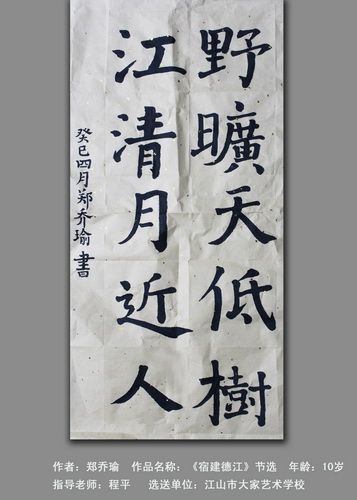 野曠天低樹
江清月近人
癸巳四月郑乔瑜書
作者：郑乔瑜 作品名称：《宿建德江》节选 年龄：10岁
指导老师：程平 选送单位：江山市大家艺术学校